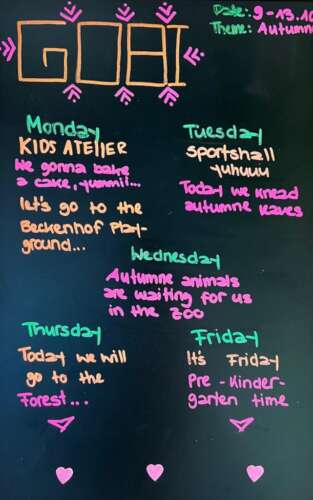 GOBI
Date: 9-13.10
Theme: Autumne
Monday
KIDS ATELIER
We gonna bake
a cake, yummii...
let's go to the
Beckenhof Play-
ground...
Tuesday
Sportshall
yuhuuu
Today we knead
autumne leaves
Wednesday
Autumne animals
are waiting for us
in the Zoo
Thursday
Today we will
go to the
Forest...
Friday
It's Friday
Pre-Kinder-
garten time